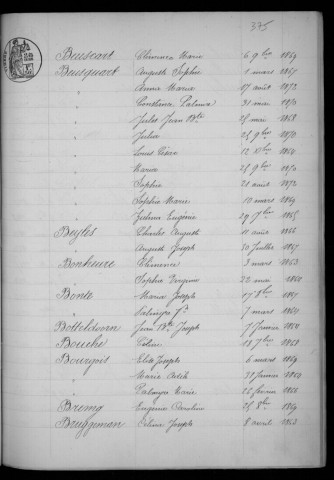 375
Beuscart Clémence Marie 6 9bre 1869
Beusquart Auguste Sophie 1 mars 1865
Anna Marie 17 août 1872
Constance Palmire 31 mai 1870
Jules Jean Bte 25 mai 1868
Julie 25 9bre 1870
Louis César 12 Xbre 1860
Marie 25 9bre 1870
Sophie 21 août 1872
Sophie Marie 10 mars 1869
Juliena Eugénie 29 7bre 1865
Beyles Charles Auguste 11 août 1866
Auguste Joseph 30 juillet 1867
Bonheure Clémence 3 mars 1863
Sophie 22 mai 1860
Bonte Marie Joseph 17 8bre 1861
Palmyre 7 mars 1864
Botteldoorn Jean Bte Joseph 7 février 1860
Bouche 18 7bre 1868
Bourgois Elise Joseph 6 mars 1869
Marie 1864
Palmyre Marie 25 février 1860
Breme Eugénie 25 8bre 1869
Bruggeman Céline Joseph 8 avril 1863